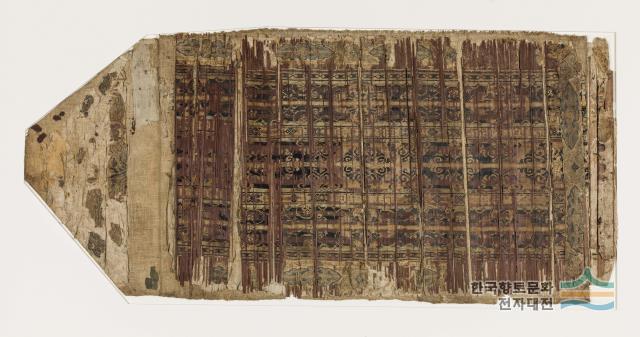 한국향토문화
전자대전